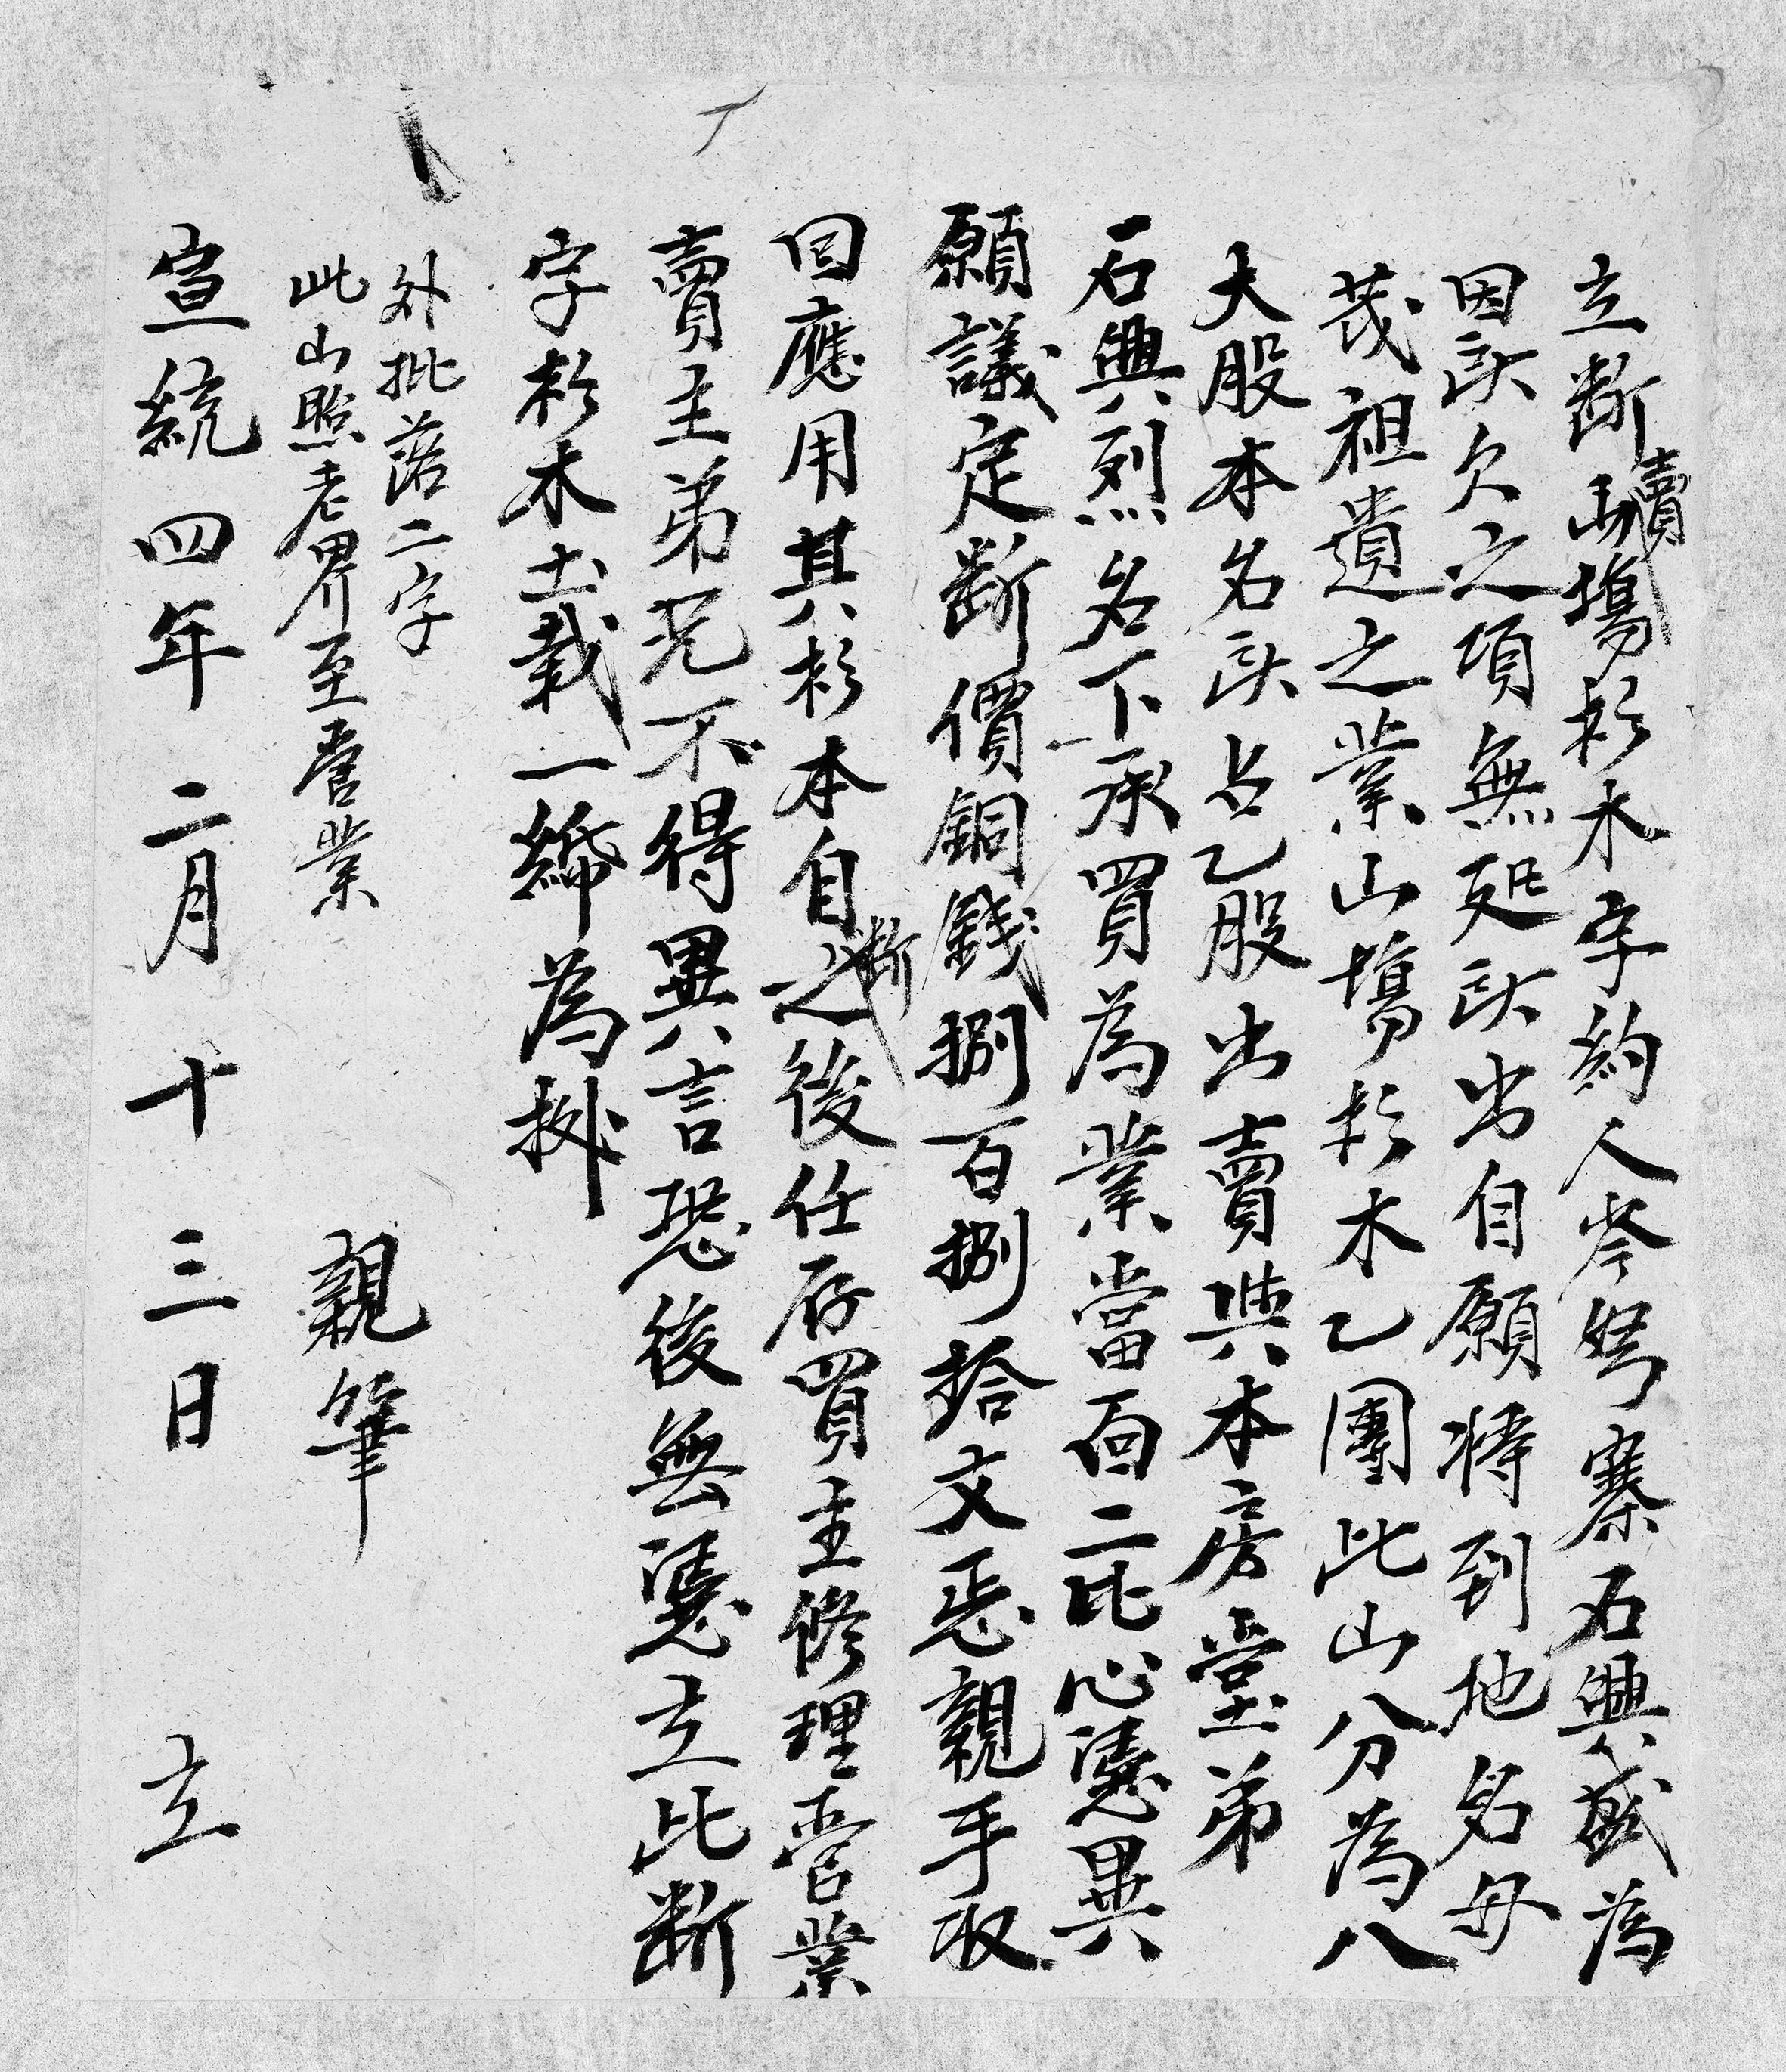 立断賣山塲杉木字約人岑努寨石興盛為
因缺欠之項無処缺出自願将到地名毋
茂祖遺之業山塲杉木乙團此山分為八
大股本名缺占乙股出賣與本房堂弟
石興烈名下承買為業當面二比心憑異
願議定断價銅錢捌百捌拾文恁親手収
回應用其杉本自断之後任存買主修理营業
賣主弟兄不得異言恐後無憑立此断
字杉木土栽一緉為拠
外批落二字
此山照老界至营業
親筆
宣統四年二月十三日 立